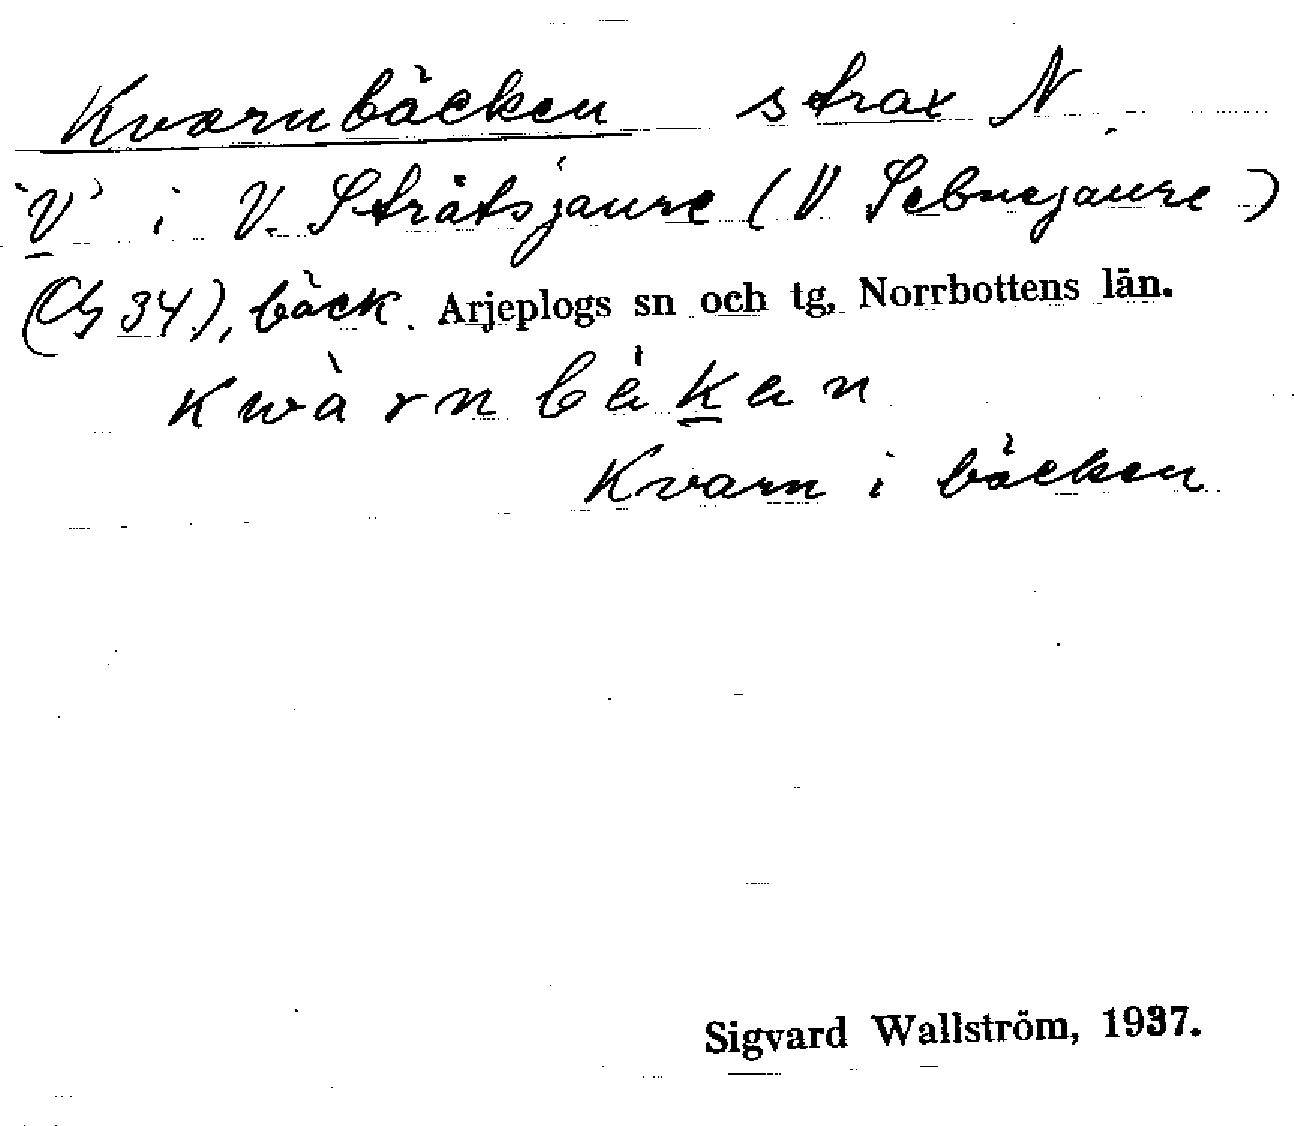 Kvarnbäcken strax N
'V' i V. Stråtsjaure (V Sebnejaure)
(Cg 34), bäck. Arjeplogs sn och tg, Norrbottens län.
kwàrnbäkan
Kvarn i bäcken
Sigvard Wallström, 1937.